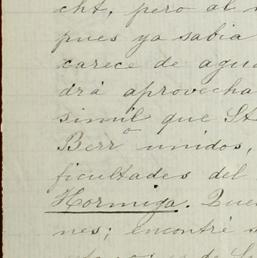 cht, pero al
pues ya sabia
carece de agua
drá aprovecha
simil que St
Berro unidos,
ficultades del
Hormiga. Que
nes; encontré